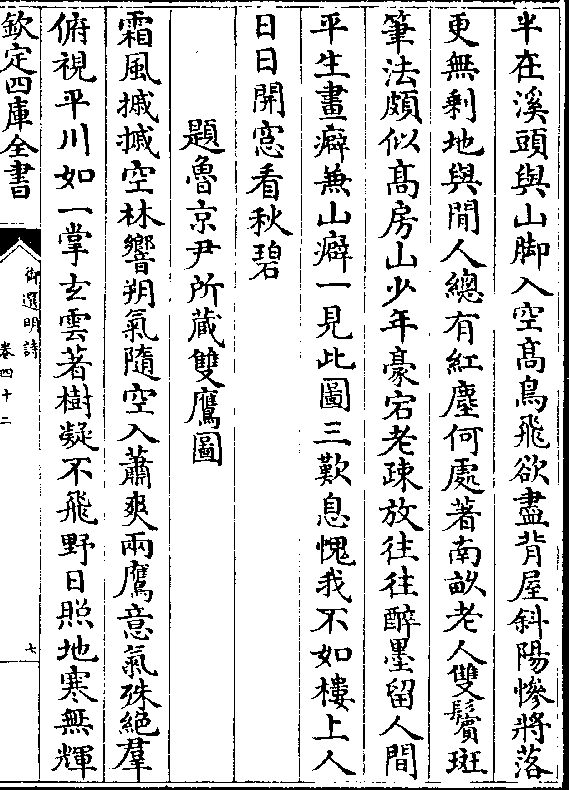 半在溪頭與山脚入空髙鳥飛欲盡背屋斜陽慘將落
更無剰地與閒人總有紅塵何處著南畝老人雙鬢斑
筆法頗似髙房山少年豪宕老疎放往往醉墨留人間
平生畫癖兼山癖一見此圖三歎息愧我不如樓上人
日日開窓看秋碧
題魯京尹所蔵雙鷹圖
霜風摵摵空林響朔氣隨空入蕭爽兩鷹意氣殊絶羣
俯視平川如一掌玄雲著樹凝不飛野日照地寒無輝
欽定四庫全書
御選明詩
卷四十二
七